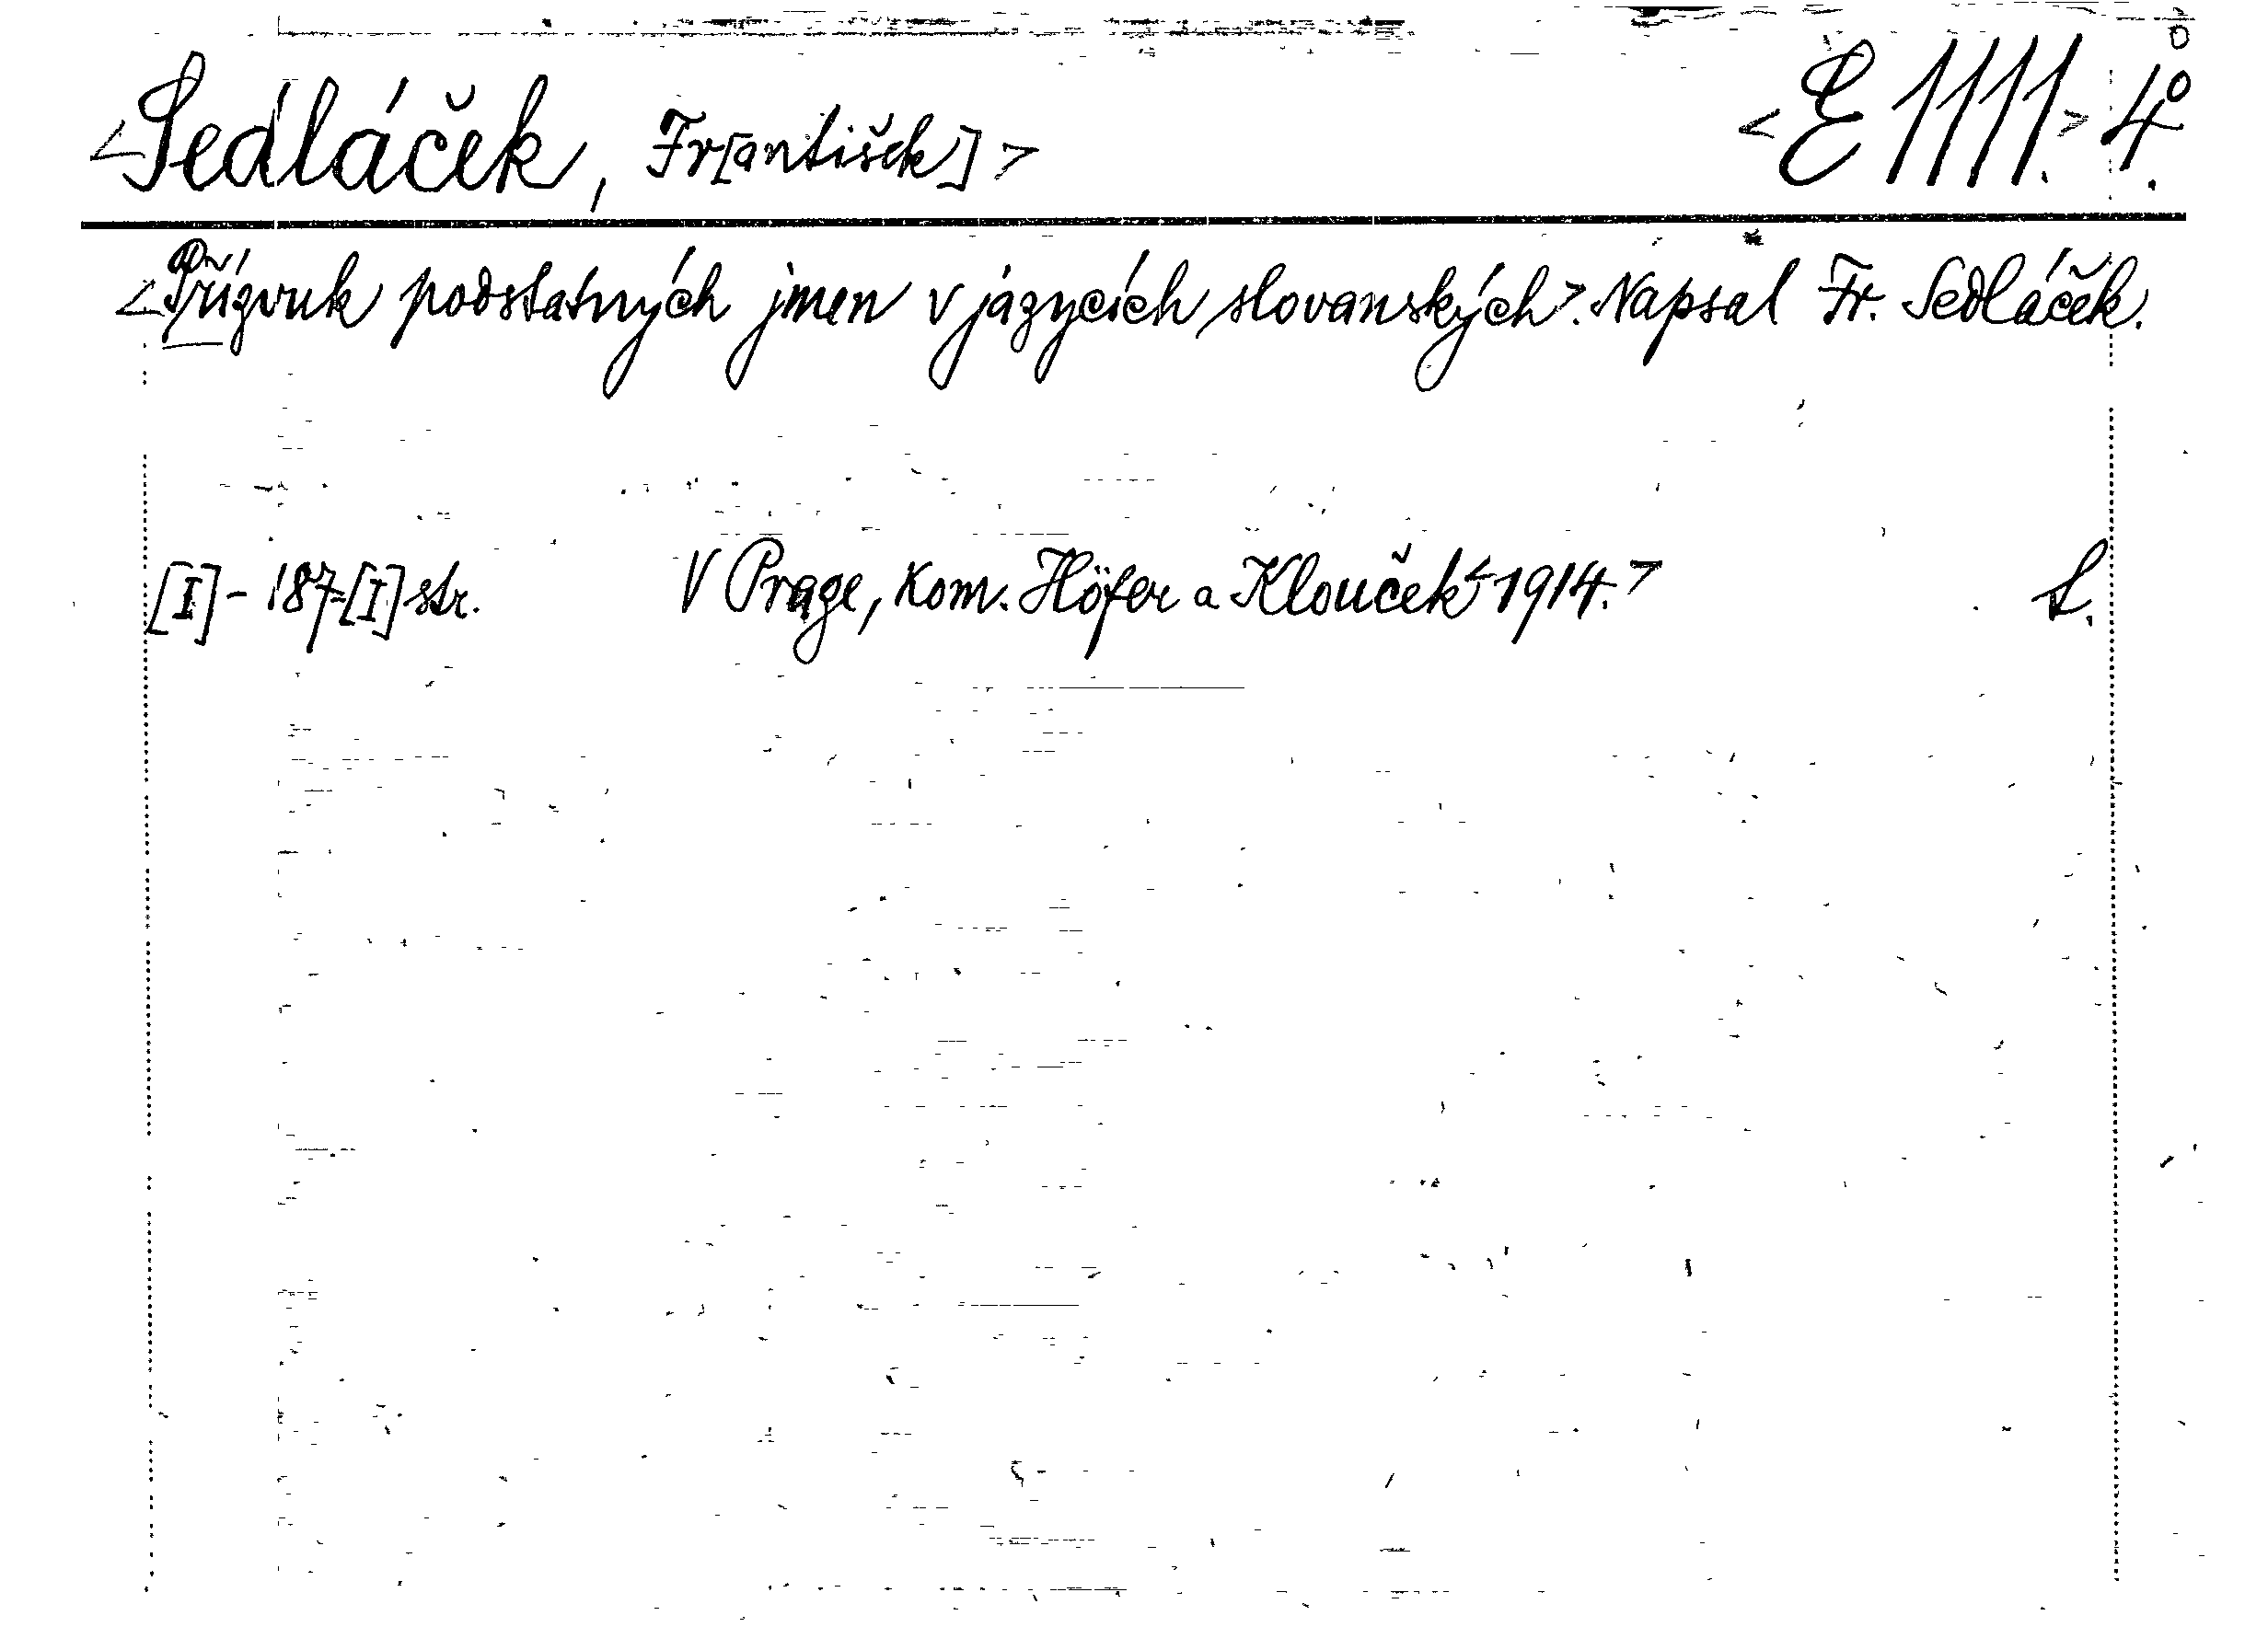 <Sedláček, Fr[antišek]> <E 1111.> 4°.
<Přízvuk podstatných jmen v jazycích slovanských>. Napsal Fr. Sedláček.
[I] - 187-[I] str. V Praze, Kom. Höfer a Klouček <1914.>